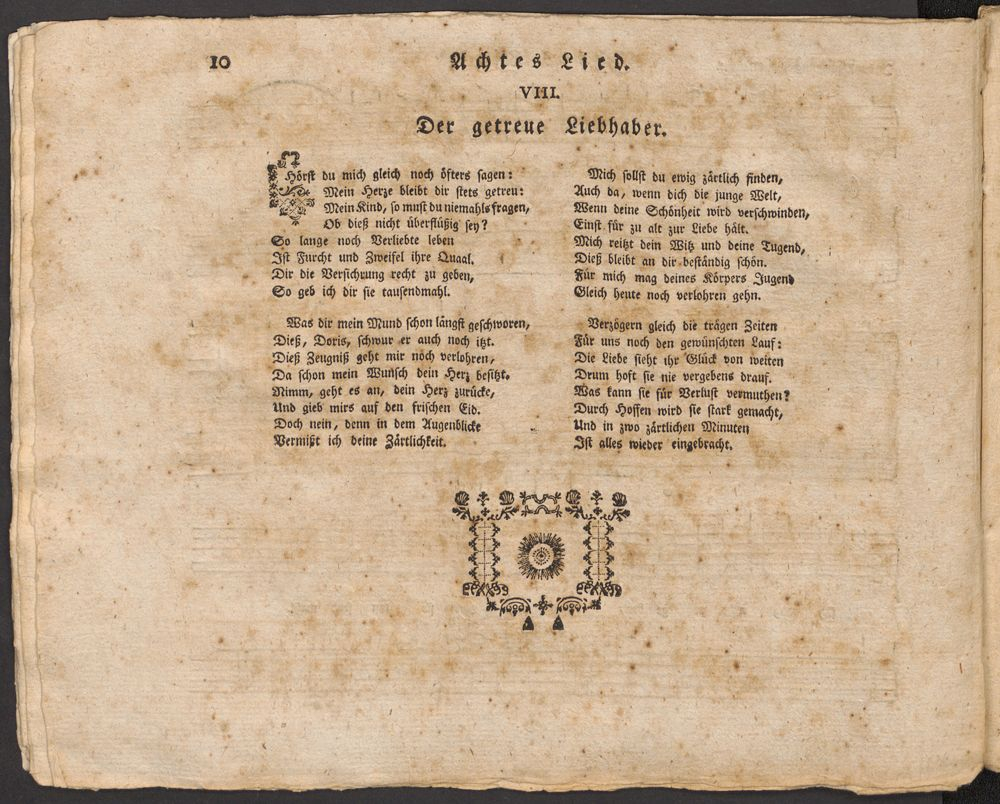 10
Achtes Lied.
VIII.
Der getreue Liebhaber.
Hörst du mich gleich noch öfters sagen:
Mein Herze bleibt dir stets getreu:
Mein Kind, so must du niemahls fragen,
Ob dieß nicht überflüßig sey?
So lange noch Verliebte leben
Ist Furcht und Zweifel ihre Quaal.
Dir die Versichrung recht zu geben,
So geb ich dir sie tausendmahl.
Was dir mein Mund schon längst geschworen,
Dieß, Doris, schwur er auch noch itzt.
Dieß Zeugniß geht mir noch verlohren,
Da schon mein Wunsch dein Herz besitzt.
Nimm, geht es an, dein Herz zurücke,
Und gieb mirs auf den frischen Eid.
Doch nein, denn in dem Augenblicke
Vermißt ich deine Zärtlichkeit.
Mich sollst du ewig zärtlich finden,
Auch da, wenn dich die junge Welt,
Wenn deine Schönheit wird verschwinden,
Einst für zu alt zur Liebe hält.
Mich reitzt dein Witz und deine Tugend,
Dieß bleibt an dir beständig schön.
Für mich mag deines Körpers Jugend
Gleich heute noch verlohren gehn.
Verzögern gleich die trägen Zeiten
Für uns noch den gewünschten Lauf:
Die Liebe sieht ihr Glück von weiten
Drum hoft sie nie vergebens drauf.
Was kann sie für Verlust vermuthen?
Durch Hoffen wird sie stark gemacht,
Und in zwo zärtlichen Minuten
Ist alles wieder eingebracht.